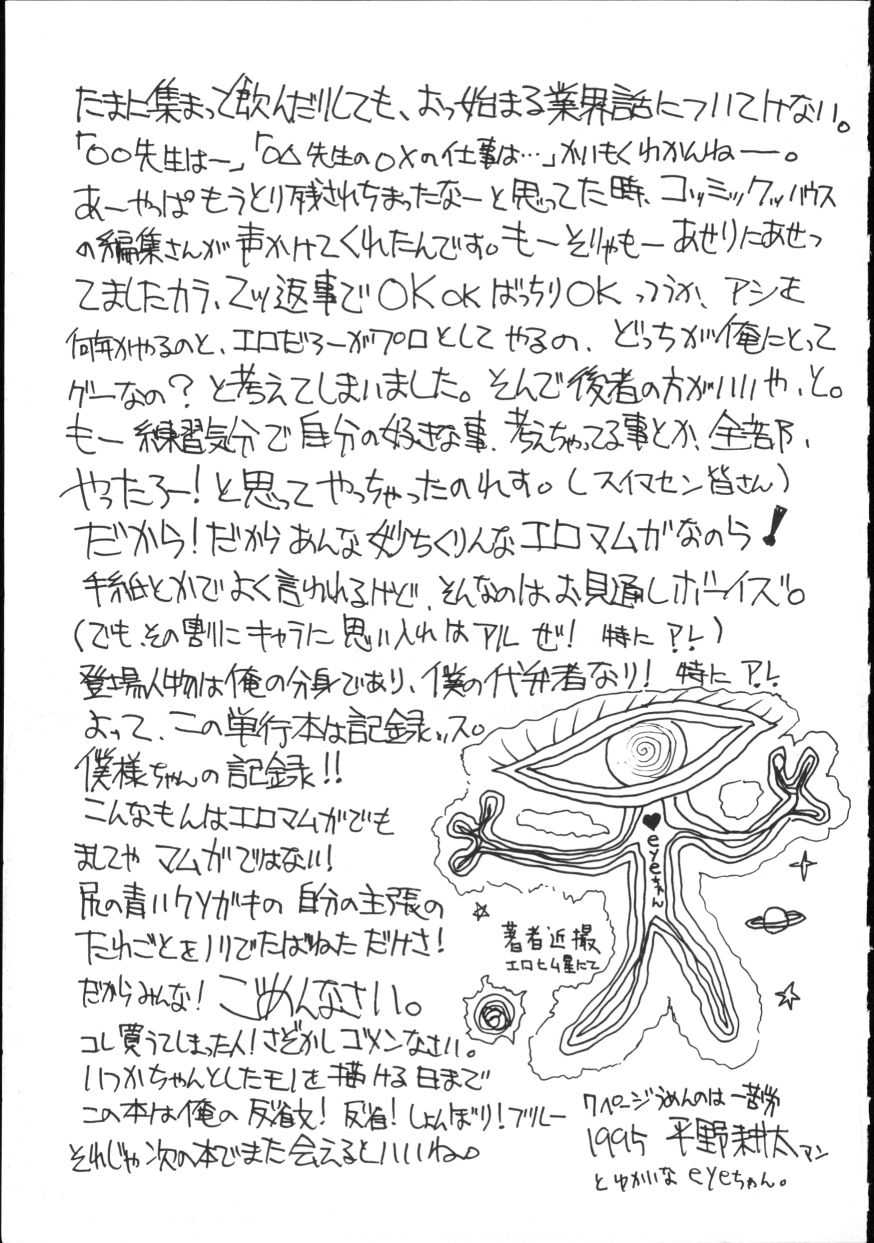 たまに集まって飲んだりしても、おっ始まる業界話についてけない。
「〇〇先生はー」「〇△先生の〇×の仕事は…」かいもくわかんねーー。
あーやっぱもうとり残されちまったなーと思ってた時、コッミックッハウス
の編集さんが声かけてくれたんです。もーそりゃもーあせりにあせっ
てましたカラ、二ツ返事でOKOKばっちりOKっつうか、アシを
何年かやるのと、エロだろーがプロとしてやるの、どっちが俺にとって
ゲーなの?と考えてしまいました。そんで後者の方がいいや、と。
もー練習気分で自分の好きな事、考えちゃってる事とか、全部、
やったろー!と思ってやっちゃったのれす。(スイマセン皆さん)
だから!だからあんな妙ちくりんなエロマムガなのら!
手紙とかでよく言われるけど、そんなのはお見通しボーイズ。
(でも、その割にキャラに思い入れはアルぜ! 特にアレ)
登場人物は俺の分身であり、僕の代弁者なり! 特にアレ
よって、この単行本は記録ッス。
僕様ちゃんの記録!!
こんなもんはエロマムガでも
ましてやマムガではない!
尻の青いクソガキの自分の主張の
たれごとをノリでたばねただけさ!
だからみんな! ごめんなさい。
コレ買うてしまった人!さぞかしゴメンなさい。
いつかちゃんとしたモノを描ける日まで
この本は俺の反省文! 反省! しょんぼり! ブルー
それじゃ次の本でまた会えるといいね。
♥eyeちゃん
著者近撮
エロヒム星にて
7ページうめんのは一苦労
1995 平野耕太マン
とゆかいなeyeちゃん。